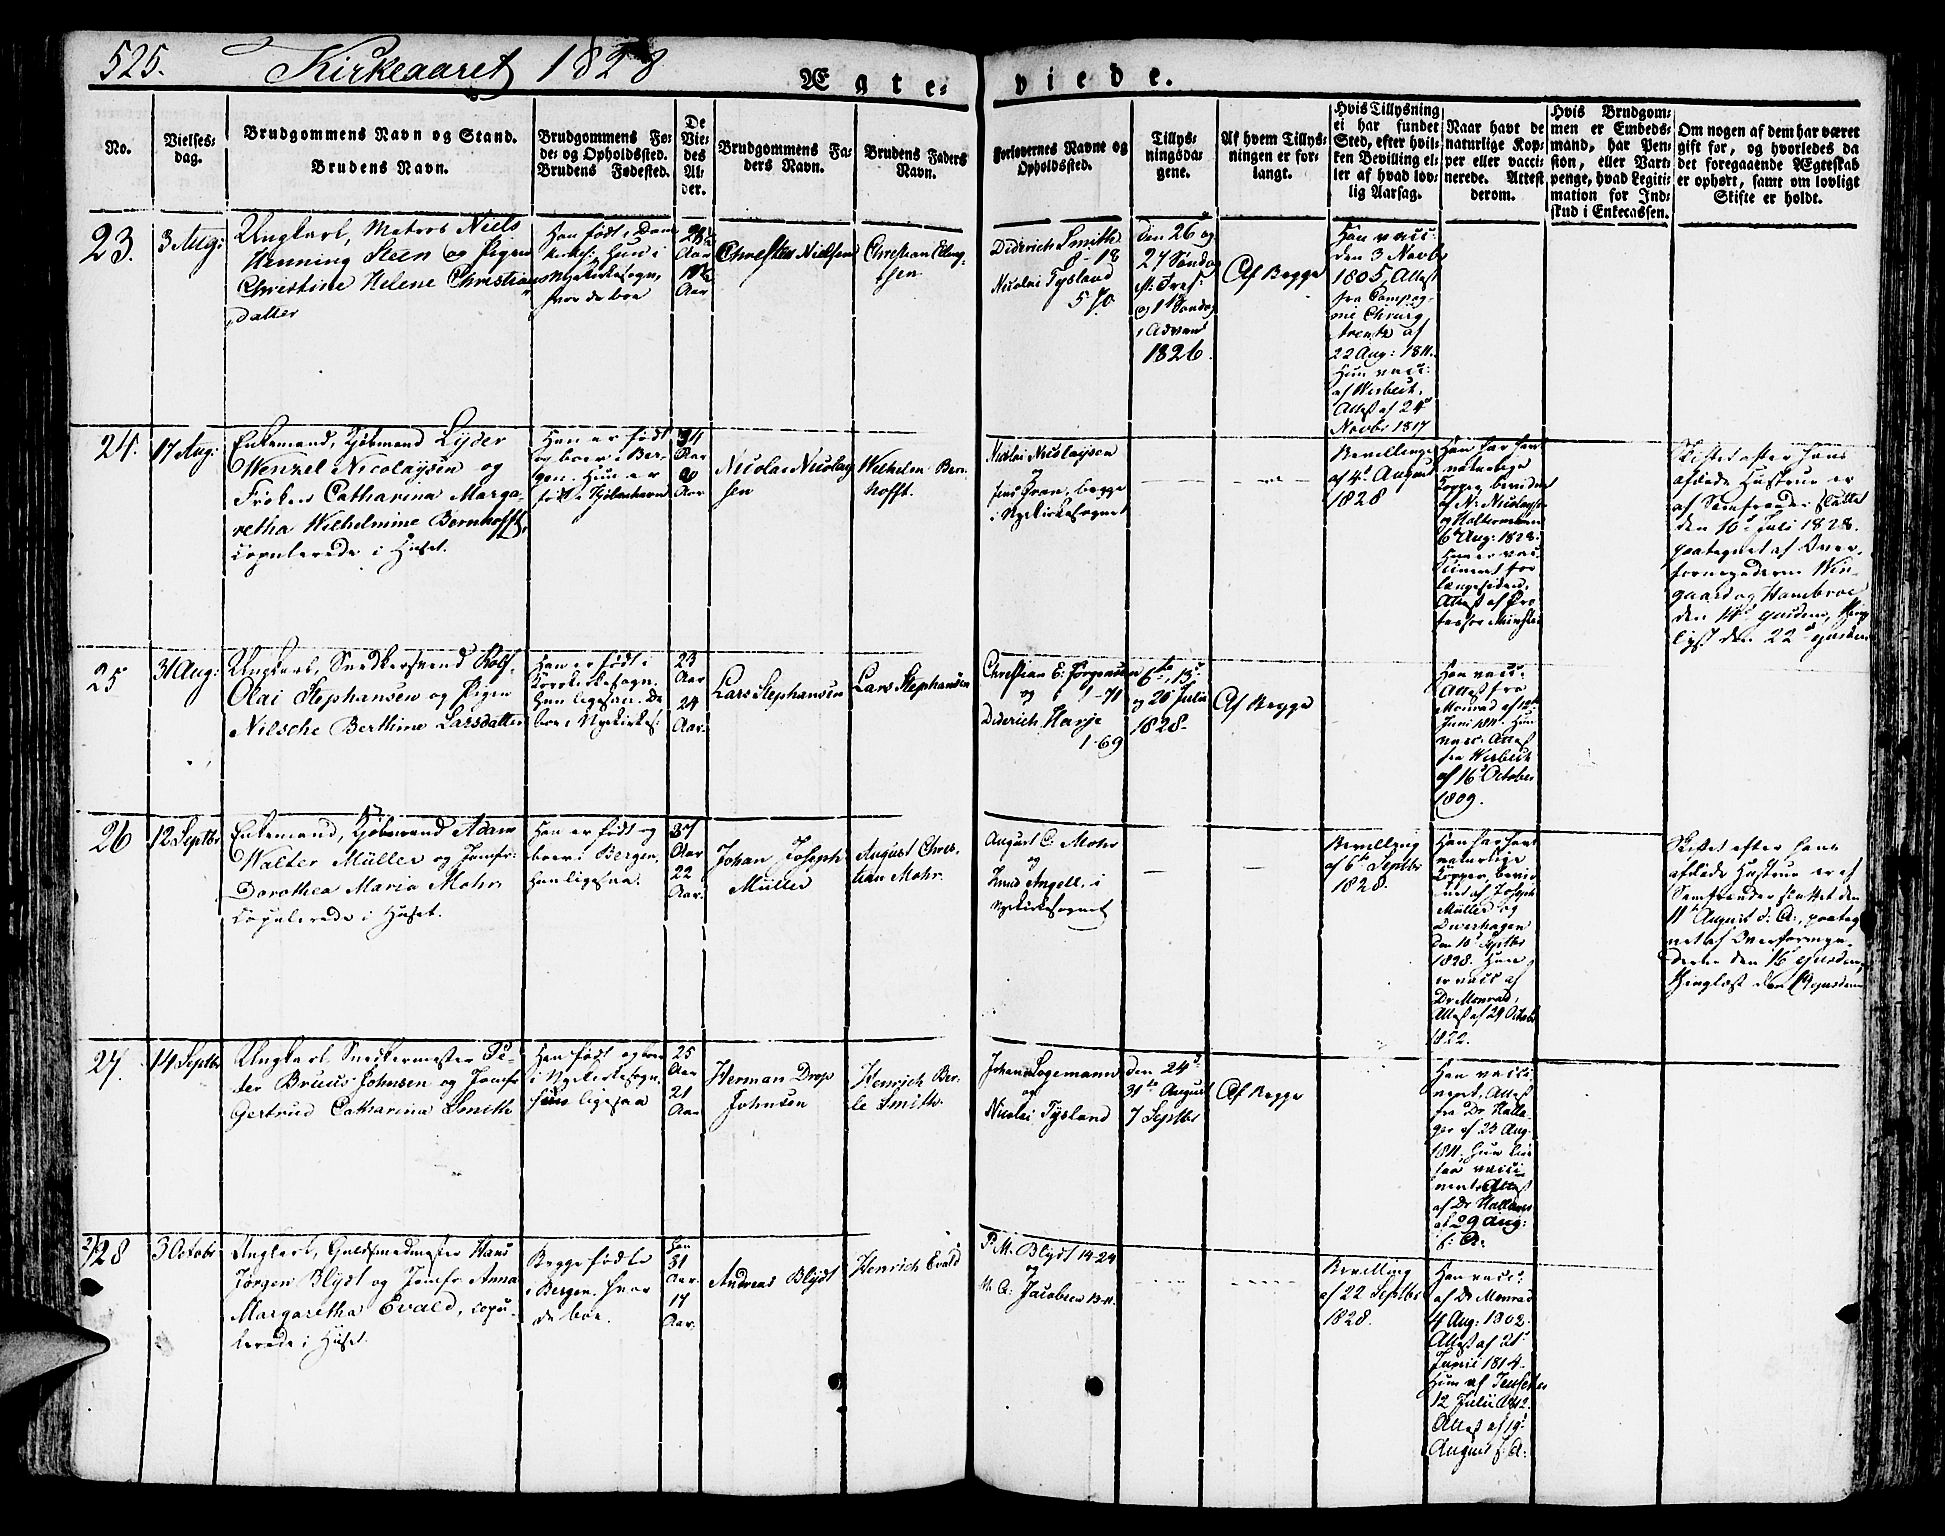 525. Kirkeaaret 1828
Ægte- viede.
No.
Vielses-
dag.
Brudgommens Navn og Stand.
Brudens Navn.
Brudgommens Fø-
de- og Opholdssted.
Brudens Fødested.
De
Vie-
des
Al-
der.
Brudgommens Fa-
ders Navn.
Brudens Faders
Navn.
Forlovernes Navne og
Opholdssted.
Tillys-
ningsda-
gene.
Af hvem Tillys-
ningen er for-
langt.
Hvis Tillysning
ei har fundet
Sted, efter hvil-
ken Bevilling el-
ler af hvad lov-
lig Aarsag.
Naar havt de
naturlige Kop-
per eller vacci-
nerede. Attest
derom.
Hvis Brudgom-
men er Embeds-
mand, har Pen-
sion, eller Vart-
penge, hvad Legiti-
mation for Ind-
skud i Enkecassen.
Om nogen af dem har været
gift for, og hvorledes da
det foregaaende Ægteskab
er ophørt, samt om lovligt
Skifte er holdt.
23.
3 Aug:
Ungkarl, Matros Niels
Henning Steen og Pigen
Christine Helene Christian
datter
Han født i Dom
kirkes: Hun i
Nykirkesogn,
hvor de boe
Aar
Aar
Christen Nielsen
Christian
Diderich Smith
8-18
Nicolai Tysland
5 70.
den 26 og
27 Søndag
e. Tref:
og 1 Søndag
i Advent
1826.
Af Begge
Han vacc:
den 3 Novbr
1805, Attest
fra Compag-
nie Chirurg
af
22 Aug: 1811.
Hun vacc:
af Wisbech,
Attest af 24d
Novbr 1817
24.
17 Aug:
Enkemand, Kjøbmand Lyder
Wenzel Nicolaysen og
Frøken Catharina Marga-
retha Wilhelmine Bornhofft,
copulerede i Huset.
Han er født
og boer i Ber-
gen. Hun er
født i Kjøbenhavn
34
Aar
Aar
Nicolai Nicolay
sen
Wilhelm Born
hofft.
Nicolai Nicolaysen
og
Jens Gran, begge
i Nykirkesognet
Bevilling
af 4d August
1828
Han har havt
naturlige
Kopper, bevidnet
af N: Nicolaysen
og Holtermann
6te Aug: 1828.
Hun er vac-
cineret for
længesiden,
Attest af Pro
fessor Münster
Skiftet efter hans
afdøde Hustrue er
af Samfrænder sluttet
den 16d Juli 1828.
paategnet af Over-
formynderne Win-
gaard og Hambroe
den 14d ejusdem, thing
lyst den 22d ejusdem
25
31 Aug:
Ungkarl, Snedkersvend Rolf
Olai Stephansen og Pigen
Nilsche Berthine Larsdatter
Han er født i
Korskirkesogn.
Hun ligesaa. De
boe i Nykirkes:
23
Aar
24
Aar.
Lars Stephansen
Lars Stephansen
Christian E. Jørgensen
1-71
og
Diderich Harje
1-69
6te, 13d
og 20d Julii
1828.
Af Begge
Han vacc.
Attest fra
Monrad af 12te
Juni 1811. Hun
vacc: Attest
fra Wisbech
af 16d October
1809.
26
12 Septbr
Enkemand, Kjøbmand Adam
Walter Müller og Jomfr:
Dorothea Maria Mohr,
copulerede i Huset.
Han er født og
boer i Bergen,
Hun ligesaa.
37
Aar
22
Aar.
Johan Joseph
Müller
August Chris-
tian Mohr.
August C. Mohr
og
Knud Angell, i
Nykirkesognet
Bevilling
af 6te Septbr
1828.
Han har havt
naturlige
Kopper, bevid-
net af Joseph
Müller og
den 10d Septbr
1828. Hun
er vacc af
Dr Monrad,
Attest af 29 Octobr
1822.
Skiftet efter hans
afdøde Hustrue er af
Samfrænder sluttet den
11te August d. A:, paateg
net af Overformyn-
derne den 16 ejusdem,
thinglæst den 19 ejusdem
27.
14 Septbr
Ungkarl Snedkermester Pe-
ter Bruus Johnsen og Jomfr
Gertrud Catharina Smith
Han født og boer
i Nykirkesogn,
Hun ligesaa
25
Aar
21
Aar.
Herman Drop
Johnsen
Henrich Ber-
le Smith.
Johan Logemann
og
Nicolai Tysland
den 24d
31te August
7 Septbr
Af Begge
Han vacci-
neret, Attest
fra Dr Halla-
ger af 23 Aug.
1811. Hun lige
saa vacci-
neret, Attest
af Dr Hallager
af 29 Aug:
f: A:
28
3 Octobr
Ungkarl, Guldsmedmester Hans
Jørgen Blydt og Jomfr Anna
Margaretha Evald, copu-
lerede i Huset
Begge fødte
i Bergen, hvor
de boe.
Han
31
Aar
17
Aar.
Andreas Blydt
Henrich Evald
P. M. Blydt 14-24
og
M. A: Jacobsen 13-11.
Bevilling
af 22 Septbr
1828.
Han vacc:
af Dr Monrad
4 Aug: 1802.
Attest af 21d
Junii 1814.
Hun af
12 Julii 1812.
Attest af 19d
August f: A: